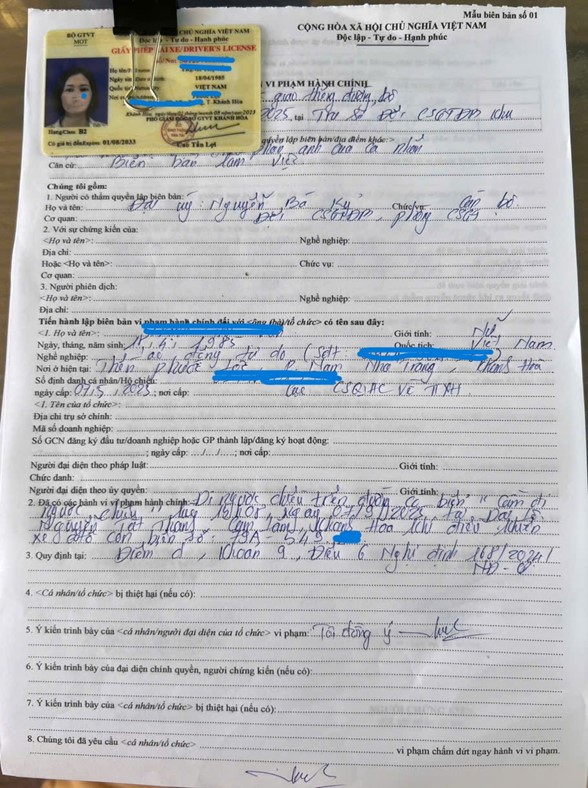 Mẫu biên bản số 01
CỘNG HÒA XÃ HỘI CHỦ NGHĨA VIỆT NAM
Độc lập - Tự do - Hạnh phúc
BỘ GTVT
MOT
VIỆT NAM
Độc lập - Tự do - Hạnh phúc
GIẤY PHÉP LÁI XE/DRIVER'S LICENSE
Số/No:
Họ tên/
18/04/1985
VIỆT NAM
T. Khánh Hòa
Khánh Hòa,
PHÓ GIÁM ĐỐC SỞ GTVT KHÁNH HÒA
Hạng/Class: B2
Có giá trị đến/Expires: 01/08/2033
Cao Tấn Lợi
VI PHẠM HÀNH CHÍNH
giao thông đường bộ
2025, tại Trụ sở Đội CSGTĐB khu
quyền lập biên bản/địa điểm khác
phản ánh của cá nhân
Căn cứ: Biên bản làm việc
Chúng tôi gồm:
1. Người có thẩm quyền lập biên bản:
Họ và tên: Đại úy: Nguyễn Bá Kỳ Chức vụ: Cán bộ
Cơ quan: Đội CSGTĐB, phòng CSGT
2. Với sự chứng kiến của:
<Họ và tên>: Nghề nghiệp:
Địa chỉ:
Hoặc <Họ và tên>: Chức vụ:
Cơ quan:
3. Người phiên dịch:
<Họ và tên>: Nghề nghiệp:
Địa chỉ:
Tiến hành lập biên bản vi phạm hành chính đối với <ông (bà)/tổ chức> có tên sau đây:
<1. Họ và tên>: Giới tính: Nữ
Ngày, tháng, năm sinh: 18, 4, 1985 Quốc tịch: Việt Nam
Nghề nghiệp: Lao động tự do (sđt:
Nơi ở hiện tại: Nam Nha Trang, Khánh Hòa
Số định danh cá nhân/Hộ chiếu:
ngày cấp: 07, 5, 2023; nơi cấp: Cục CSQLHC về TTXH
<1. Tên của tổ chức>:
Địa chỉ trụ sở chính:
Mã số doanh nghiệp:
Số GCN đăng ký đầu tư/doanh nghiệp hoặc GP thành lập/đăng ký hoạt động:
; ngày cấp: .../..../.....; nơi cấp:
Người đại diện theo pháp luật: Giới tính:
Chức danh:
Người đại diện theo ủy quyền: Giới tính:
2. Đã có các hành vi vi phạm hành chính: Đi ngược chiều trên đường có biển "Cấm đi
ngược chiều", lúc ngày 07/9/2025, tại Đại lộ
Nguyễn Tất Thành, Cam Lâm, Khánh Hòa khi điều khiển
xe ôtô con biển số: 79A - 549
3. Quy định tại: Điểm d, Khoản 9, Điều 6 Nghị định 168/2024/
NĐ-CP
4. <Cá nhân/tổ chức> bị thiệt hại (nếu có):
5. Ý kiến trình bày của <cá nhân/người đại diện của tổ chức> vi phạm: Tôi đồng ý
6. Ý kiến trình bày của đại diện chính quyền, người chứng kiến (nếu có):
7. Ý kiến trình bày của <cá nhân/tổ chức> bị thiệt hại (nếu có):
8. Chúng tôi đã yêu cầu <cá nhân/tổ chức> vi phạm chấm dứt ngay hành vi vi phạm.